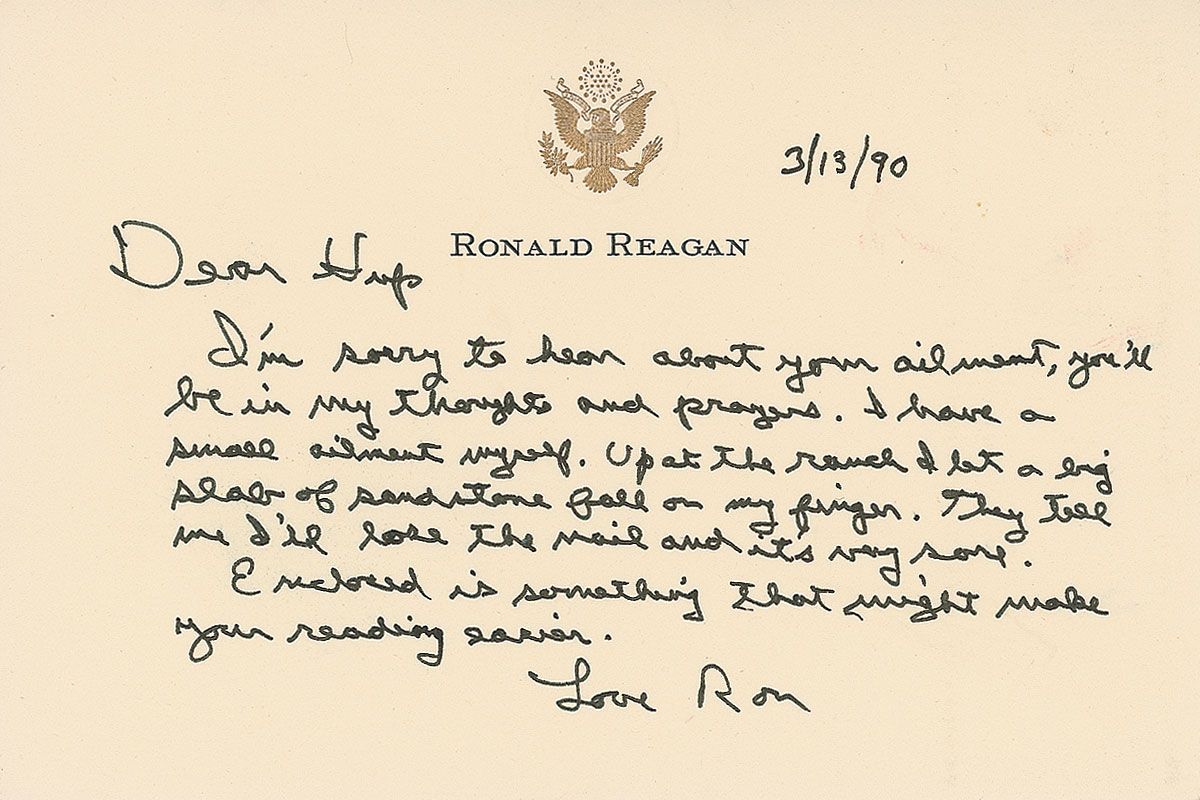 3/13/90
RONALD REAGAN
Dear Hup
I'm sorry to hear about your ailment, you'll
be in my thoughts and prayers. I have a
small ailment myself. Up at the ranch I let a big
slab of sandstone fall on my finger. They tell
me I'll lose the nail and it's very sore.
Enclosed is something that might make
your reading easier.
Love Ron